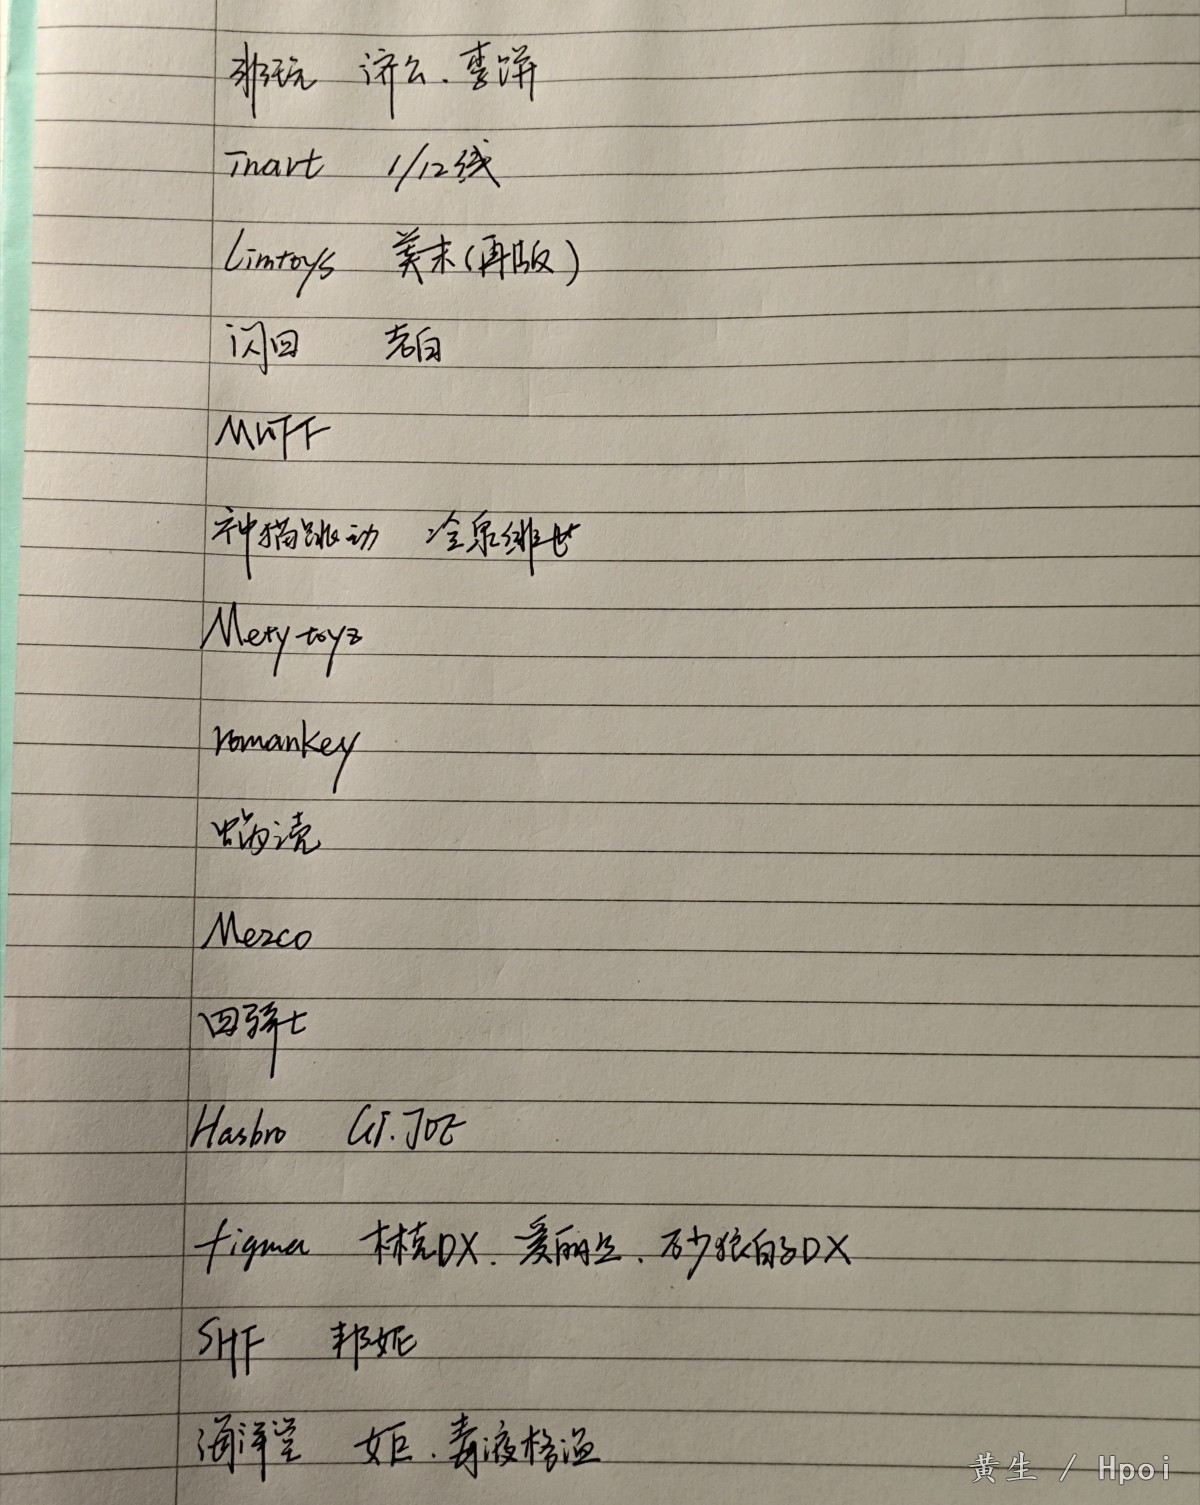 邪玩 济公.李饼
Inart 1/12线
Limtoys 美末(再版)
闪回 老白
MUFF
神猫跳动 冷泉绯世
Metytoyz
romankey
蜗之壳
Mezco
四骑士
Hasbro GI.JOE
figma 林克DX.爱丽丝.砂狼白子DX
SHF 邦妮
海洋堂 女巨.毒液格温
黄生 / Hpoi